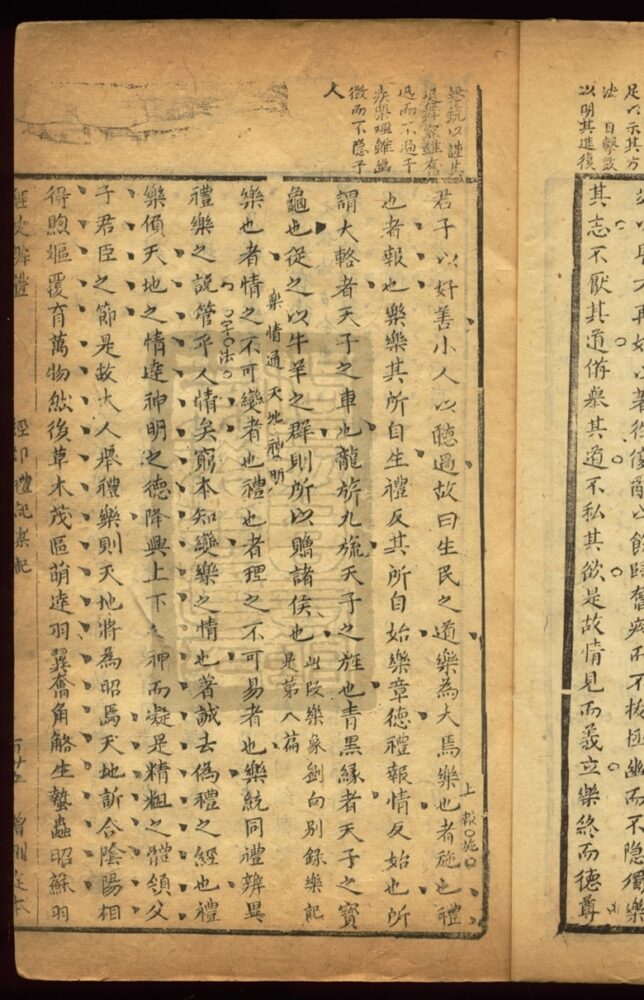 足以示其方
法 自擊鼓
以明其進復
再始以著往復亂以飭歸奮疾而不拔極幽而不隱獨樂
其志不厭其道備舉其道不私其欲是故情見而義立樂終而德尊
疾樂理雖幽
微而不隱子
人
君子以好善小人以聽過故曰生民之道樂為大焉樂也者施也禮
上 報 施
也者報也樂樂其所自生禮反其所自始樂章德禮報情反始也所
謂大輅者天子之車也龍旂九旒天子之旌也青黑緣者天子之寶
龜也從之以牛羊之群則所以贈諸侯也
此段樂象劉向別錄樂記
是第八篇
樂情通 天地神明
樂也者情之不可變者也禮也者理之不可易者也樂統同禮辨異
禮樂之說管乎人情矣窮本知變樂之情也著誠去偽禮之經也禮
樂偩天地之情達神明之德降興上下之神而凝是精粗之體領父
子君臣之節是故大人舉禮樂則天地將為昭焉天地訢合陰陽相
得煦嫗覆育萬物然後草木茂區萌達羽翼奮角觡生蟄蟲昭蘇羽
禮記樂記